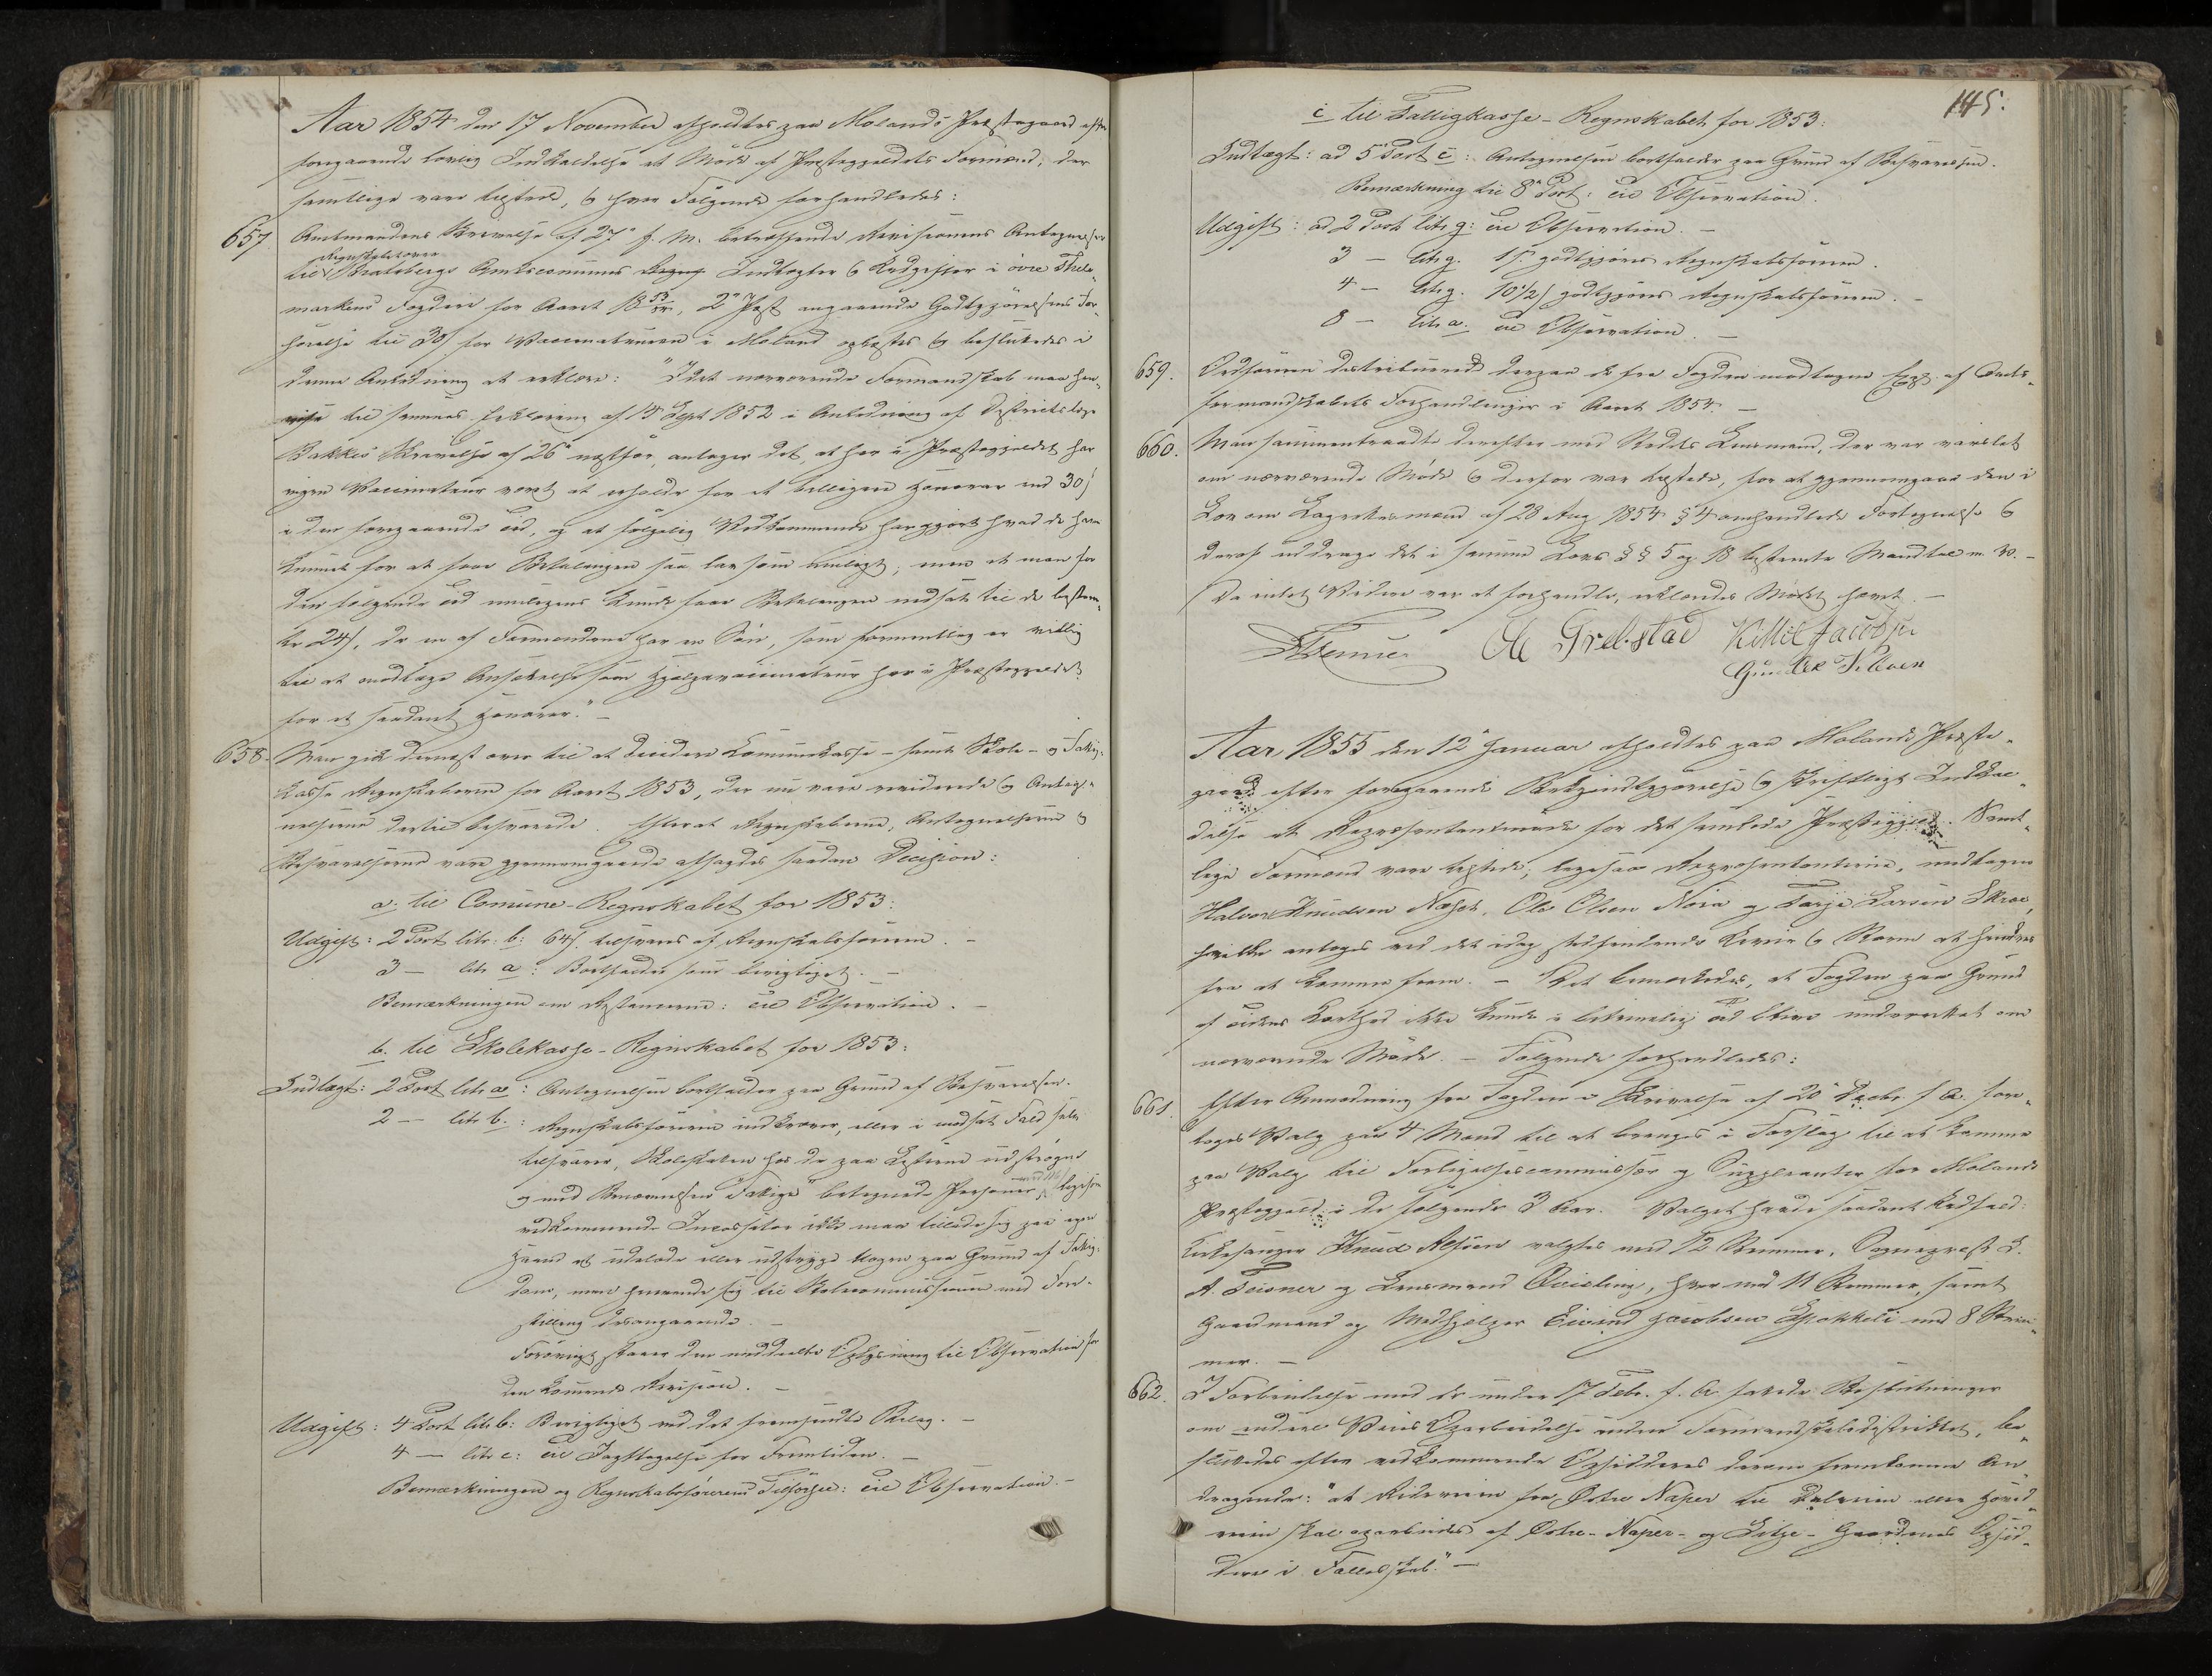 Aar 1854 den 17 November afholdtes paa Molands Præstegaard efter
foregaaende lovlig Indkaldelse et Møde af Præstegjeldets Formænd, der
samtlige vare tilstede, & hvor Følgende forhandledes:
657. Amtmandens Skrivelse af 27de f. M. betræffende Revisionens Antegnelser
Regnskaberne
til Bratsbergs Amtscommunes Indtægter & Udgifter i øvre Thele-
markens Fogderi for Aaret 1853, 2den Post angaaende Godtgjørelsens For-
høielse til 30 s for Vaccinateuren i Moland oplæstes & besluttedes i
denne Anledning at erklære: "Idet nærværende Formandskab maa hen-
vise til sammes Erklæring af 14 Sept 1852 i Anledning af Districtslæge
Bakkes Skrivelse af 26de næstfør, antager det, at her i Præstegjeldet har
ingen Vaccinateur været at erholde for et billigere Honorar end 30 s
i den foregaaende Tid, og at følgelig Vedkommende har gjort hvad de have
kunnet for at faae Betalingen saa lav som muligt; men at man for
den følgende Tid muligens kunde faae Betalingen nedsat til de bestem-
te 24 s, da en af Formændene har en Søn, som formentlig er villig
til at modtage Ansættelse som Hjælpevaccinateur her i Præstegjeldet
for et saadant Honorar." –
658. Man gik dernæst over til at decidere Communekasse- samt Skole- og Fattig-
kasse Regnskaberne for Aaret 1853, der nu vare reviderede & Anteg-
nelserne dertil besvarede. Efterat Regnskaberne, Antegnelserne &
Besvarelserne vare gjennemgaaede afsagdes saadan Decision:
a. til Comune-Regnskabet for 1853:
Udgift: 2 Post litr. b: 64 s. tilsvares af Regnskabsføreren. –
3 — litr a: Bortfalder som berigtiget. –
Bemærkningen om Restancerne: til Observation. –
b. til Skolekasse-Regnskabet for 1853:
Indtægt: 2 Post litr a: Antegnelsen bortfalder paa Grund af Besvarelsen.
2 — litr b.: Regnskabsføreren indkræver, eller i modsat Fald selv
tilsvarer, Skoleskatten hos de paa Listerne udstrøgne
og med Benævnelsen "Fattige" betegnede Personer, ligesom
vedkommende Incassator ikke maa tillade sig paa egen
Haand at udelade eller udstryge Nogen paa Grund af Fattig-
dom, men henvende sig til Skolecommissionen med Fore-
stilling desangaaende. –
Forøvrigt staaer den meddeelte Oplysning til Observation for
den kommende Revision. –
Udgift: 4 Post litr b: Berigtiget ved det fremsendte Bilag. –
4 — litr c: til Iagttagelse for Fremtiden. –
Bemærkningen og Regnskabsførerens Tilføjelse: til Observation. –
145.
c til Fattigkasse-Regnskabet for 1853:
Indtægt: ad 5 Post c: Antegnelsen bortfalder paa Grund af Besvarelsen.
Bemærkning til 8de Post: til Observation.
Udgift: ad 2 Post litr g: til Observation. –
3 — litr g. 1 s. godtgjøres Regnskabsføreren.
4 — litr g. 10 1/2 s godtgjøres Regnskabsføreren. –
8 — litr a. til Observation. –
659. Ordføreren distribuerede derpaa de fra Fogden modtagne Expl. af Amts-
formandskabets Forhandlinger i Aaret 1854. –
660. Man sammentraadte derefter med Stedets Lensmand, der var varslet
om nærværende Møde & derfor var tilstede, for at gjennemgaae den i
Lov om Lagrettesmænd af 28 Aug 1854 § 4 omhandlede Fortegnelse &
deraf uddrage det i samme Lovs §§ 5 og 18 bestemte Mandtal m. V. –
Da intet Videre var at forhandle, erklæredes Mødet hævet. –
Ole Trelstad Kittil Jacobsen
Aar 1855 den 12te Januar afholdtes paa Molands Præste-
gaard efter foregaaende Bekjendtgjørelse & skriftligt Indkal-
delse et Repræsentantmøde for det samlede Præstegjeld. Samt-
lige Formænd vare tilstede; ligesaa Repræsentanterne, undtagen
Halvor Knudsen Næset, Ole Olsen Moen og Tarje Larsen Skree,
hvilke antages ved det idag stedfindende Kovir & Storm at hindres
fra at komme frem. – Det bemærkedes, at Fogden paa Grund
af Tidens Korthed ikke kunde i betimelig Tid blive underrettet om
nærværende Møde. – Følgende forhandledes:
661. Efter Anmodning fra Fogden i Skrivelse af 20de Decbr. f. A. fore-
toges Valg paa 4 Mænd til at bringes i Forslag til at komme
paa Valg til Forligelsescommissær og Suppleanter for Molands
Præstegjeld i de følgende 3 Aar. Valget havde saadant Udfald:
Kirkesanger Knud Alfsen valgtes med 12 Stemmer, Sognepræst L.
A. Teisner og Lensmand Qvisling, hver med 11 Stemmer, samt
Gaardmand og Medhjælper Eivind Jacobsen Spokkeli med 8 Stem-
mer. –
662. I Forbindelse med de under 17 Febr. f. A. fattede Beslutninger
om endeel Veies Oparbeidelse inden Formandskabsdistriktet, be-
sluttedes efter vedkommende Opsidderes derom fremkomne An-
dragende: "at Rideveien fra Østre Naper til Dalveien eller Hoved-
veien skal oparbeides af Østre-Naper- og Litje- Gaardenes Opsid-
dere i Fællesskab." –